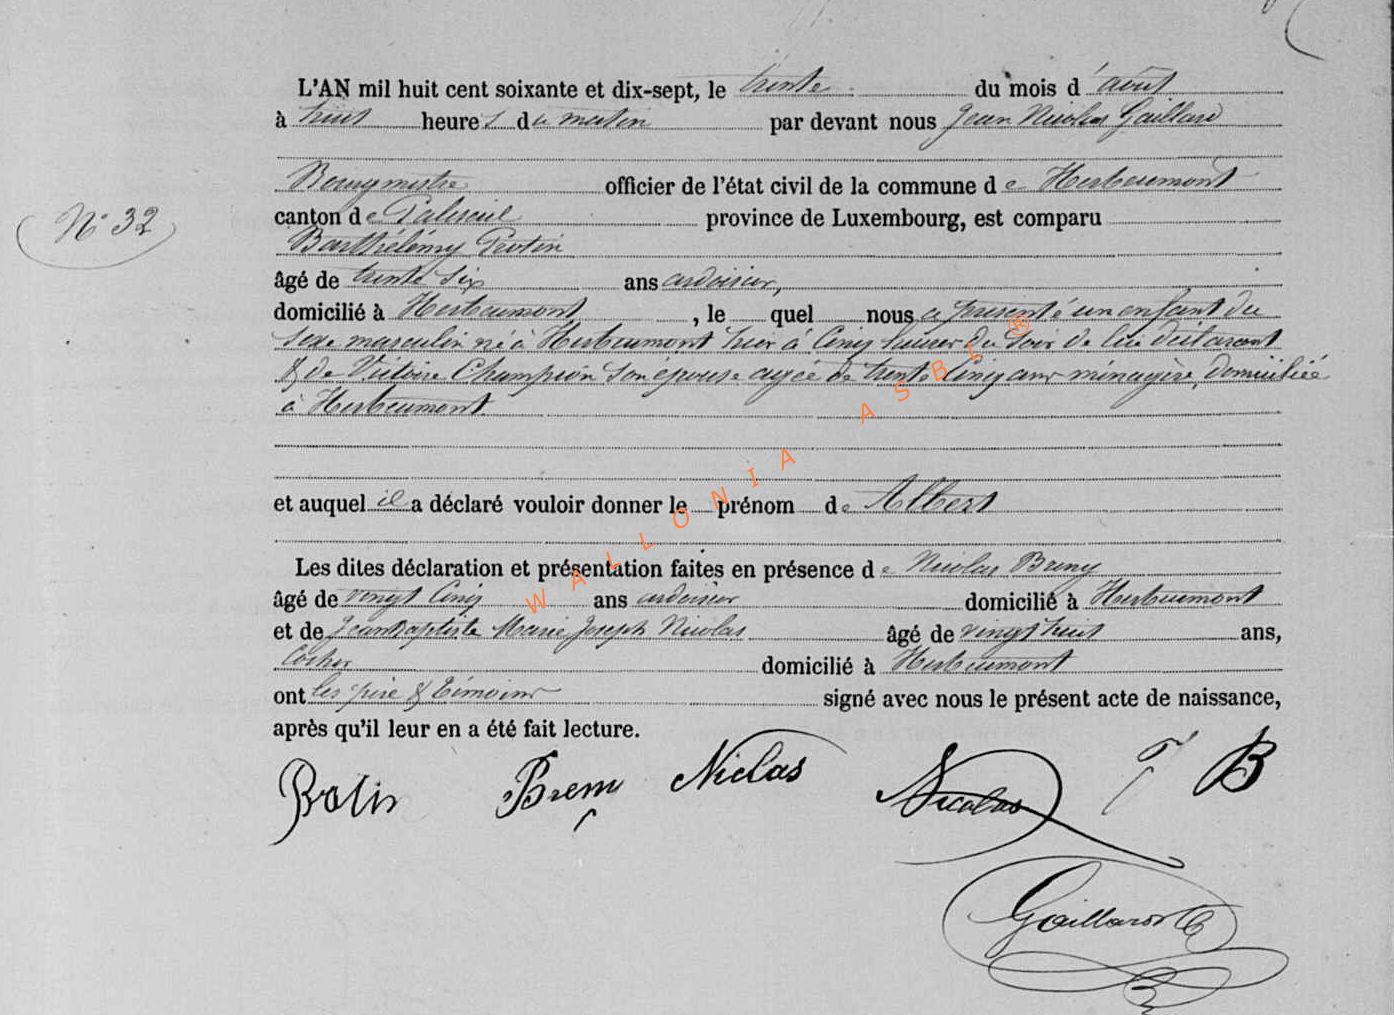 L'AN mil huit cent soixante et dix-sept, le trente du mois d'août
à huit heures du matin par devant nous Jean Nicolas Gaillard
Bourgmestre officier de l'état civil de la commune de Herbeumont
N° 32
canton de Paliseul province de Luxembourg, est comparu
Barthélémy Protin
âgé de trente six ans ardoisier,
domicilié à Herbeumont, le quel nous a présenté un enfant du
sexe masculin né à Herbeumont hier à Cinq heures du Soir de lui déclarant
& de Victoire Champion son épouse agée de trente Cinq ans ménagère, domiciliée
à Herbeumont
et auquel il a déclaré vouloir donner le prénom de Albert
Les dites déclaration et présentation faites en présence de Nicolas Bremy
âgé de vingt Cinq ans ardoisier domicilié à Herbeumont
et de Jean Baptiste Marie Joseph Nicolas âgé de vingt huit ans,
Cocher domicilié à Herbeumont
ont les père & témoins signé avec nous le présent acte de naissance,
après qu'il leur en a été fait lecture.
Protin Bremy Niclas Nicolas J B
Gaillard
WALLONIA ASBL ®